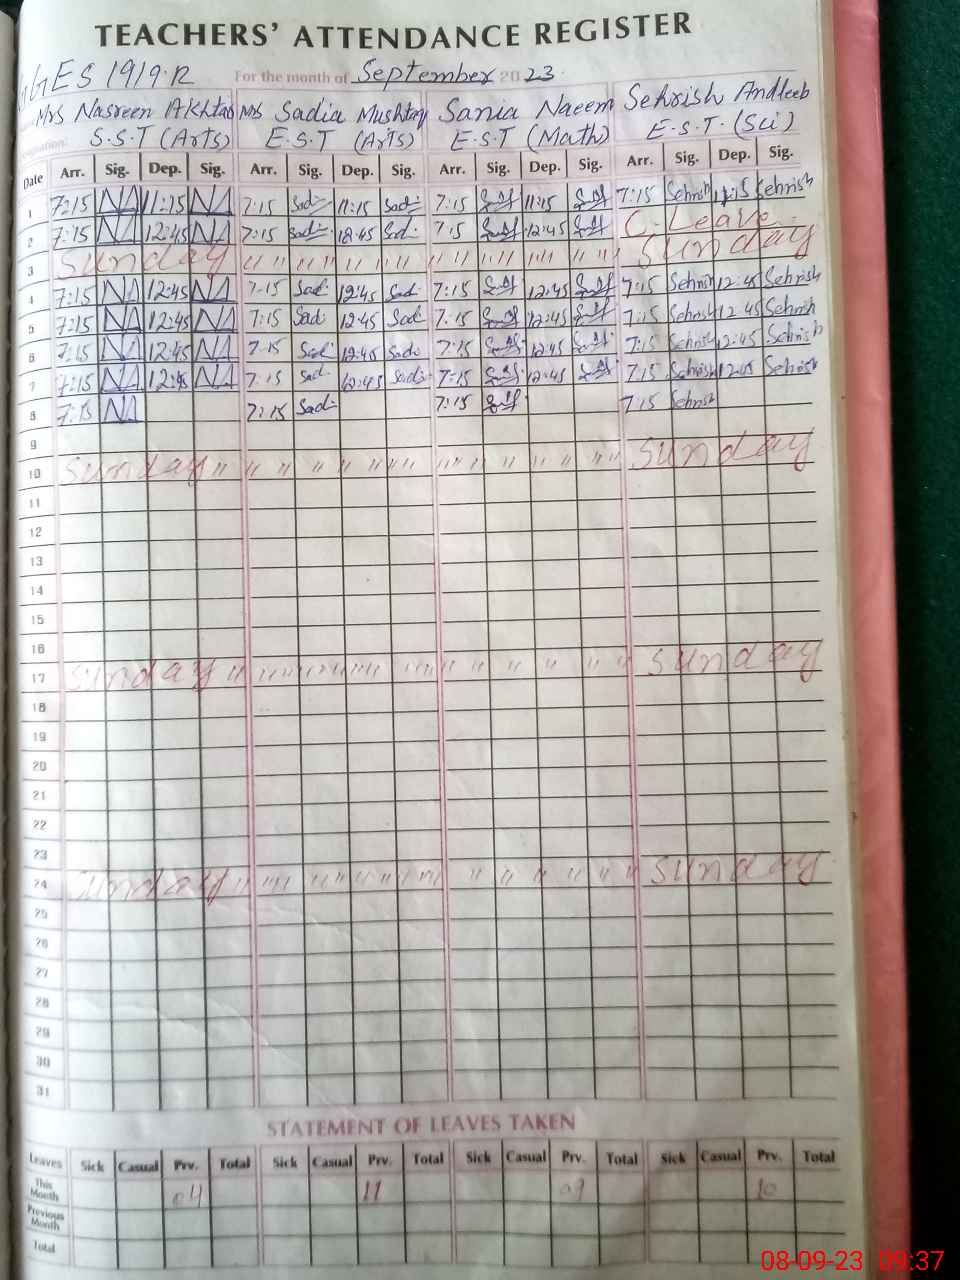 TEACHERS' ATTENDANCE REGISTER
GGES 19/9.R For the month of September 2023
Mrs Nasreen Akhtar Mrs Sadia Mushtaq Sania Naeem Sehrish Andleeb
S.S.T (Arts) E.S.T (Arts) E.S.T (Math) E.S.T. (Sci)
Date Arr. Sig. Dep. Sig. Arr. Sig. Dep. Sig. Arr. Sig. Dep. Sig. Arr. Sig. Dep. Sig.
1 7:15 NA 11:15 NA 7:15 Sadi 11:15 Sadi 7:15 11:15 7:15 Sehrish 11:15 Sehrish
2 7:15 NA 12:45 NA 7:15 Sadi 12:45 Sadi 7:15 12:45 C. Leave
3 Sunday " " " " " " " " " " " " " " " " Sunday
4 7:15 NA 12:45 NA 7:15 Sadi 12:45 Sadi 7:15 12:45 7:15 Sehrish 12:45 Sehrish
5 7:15 NA 12:45 NA 7:15 Sadi 12:45 Sadi 7:15 12:45 7:15 Sehrish 12:45 Sehrish
6 7:15 NA 12:45 NA 7:15 Sadi 12:45 Sadi 7:15 12:45 7:15 Sehrish 12:45 Sehrish
7 7:15 NA 12:45 NA 7:15 Sadi 12:45 Sadi 7:15 12:45 7:15 Sehrish 12:45 Sehrish
8 7:15 NA 7:15 Sadi 7:15 7:15 Sehrish
9
10 Sunday " " " " " " " " " " " " " " " " Sunday
11
12
13
14
15
16
17 Sunday " " " " " " " " " " " " " " " " Sunday
18
19
20
21
22
23
24 Sunday " " " " " " " " " " " " " " " " Sunday
25
26
27
28
29
30
31
STATEMENT OF LEAVES TAKEN
Leaves Sick Casual Prv. Total Sick Casual Prv. Total Sick Casual Prv. Total Sick Casual Prv. Total
This Month 04 11 09 10
Previous Month
Total
08-09-23 09:37